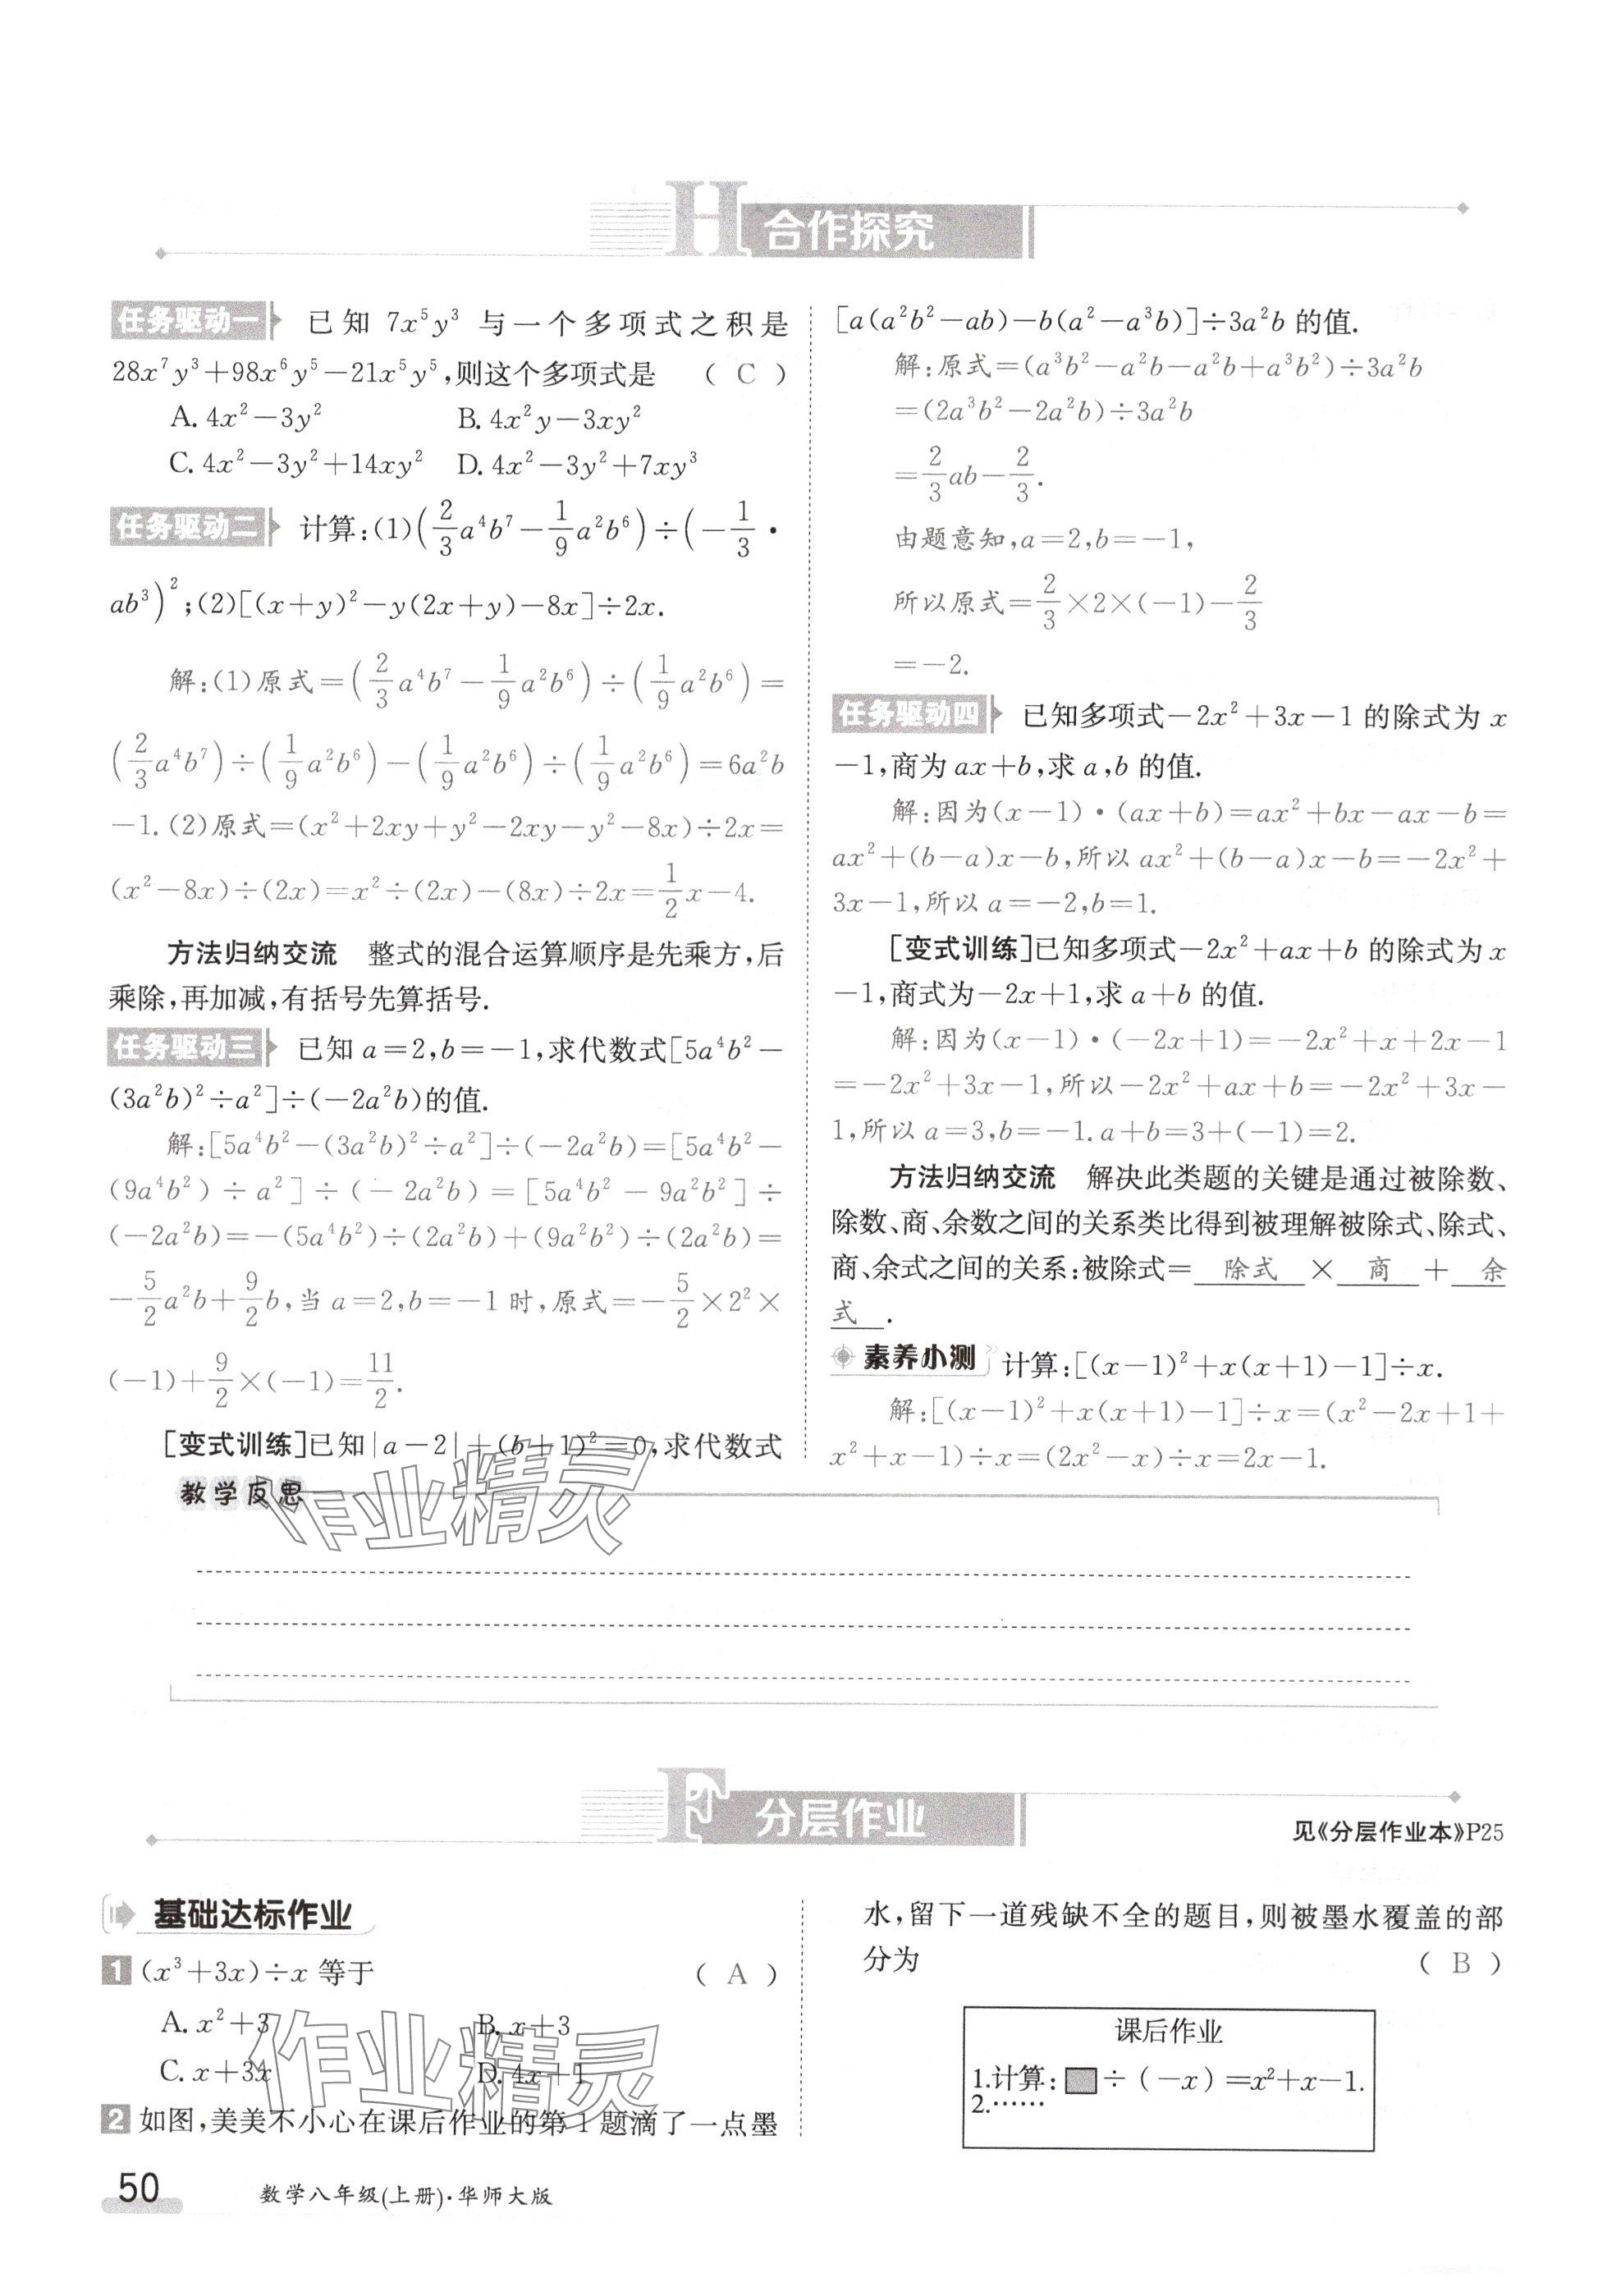 H 合作探究
任务驱动一 已知 7x⁵y³ 与一个多项式之积是
28x⁷y³+98x⁶y⁵-21x⁵y⁵,则这个多项式是 ( C )
A. 4x²-3y² B. 4x²y-3xy²
C. 4x²-3y²+14xy² D. 4x²-3y²+7xy³
任务驱动二 计算:(1)(2/3 a⁴b⁷-1/9 a²b⁶)÷(-1/3·
ab³)²;(2)[(x+y)²-y(2x+y)-8x]÷2x.
解:(1)原式=(2/3 a⁴b⁷-1/9 a²b⁶)÷(1/9 a²b⁶)=
(2/3 a⁴b⁷)÷(1/9 a²b⁶)-(1/9 a²b⁶)÷(1/9 a²b⁶)=6a²b
-1.(2)原式=(x²+2xy+y²-2xy-y²-8x)÷2x=
(x²-8x)÷(2x)=x²÷(2x)-(8x)÷2x=1/2 x-4.
方法归纳交流 整式的混合运算顺序是先乘方,后
乘除,再加减,有括号先算括号.
任务驱动三 已知 a=2,b=-1,求代数式[5a⁴b²-
(3a²b)²÷a²]÷(-2a²b)的值.
解:[5a⁴b²-(3a²b)²÷a²]÷(-2a²b)=[5a⁴b²-
(9a⁴b²)÷a²]÷(-2a²b)=[5a⁴b²-9a²b²]÷
(-2a²b)=-(5a⁴b²)÷(2a²b)+(9a²b²)÷(2a²b)=
-5/2 a²b+9/2 b,当 a=2,b=-1 时,原式=-5/2×2²×
(-1)+9/2×(-1)=11/2.
[变式训练]已知|a-2|+(b+1)²=0,求代数式
[a(a²b²-ab)-b(a²-a³b)]÷3a²b 的值.
解:原式=(a³b²-a²b-a²b+a³b²)÷3a²b
=(2a³b²-2a²b)÷3a²b
=2/3 ab-2/3.
由题意知,a=2,b=-1,
所以原式=2/3×2×(-1)-2/3
=-2.
任务驱动四 已知多项式-2x²+3x-1 的除式为 x
-1,商为 ax+b,求 a,b 的值.
解:因为(x-1)·(ax+b)=ax²+bx-ax-b=
ax²+(b-a)x-b,所以 ax²+(b-a)x-b=-2x²+
3x-1,所以 a=-2,b=1.
[变式训练]已知多项式-2x²+ax+b 的除式为 x
-1,商式为-2x+1,求 a+b 的值.
解:因为(x-1)·(-2x+1)=-2x²+x+2x-1
=-2x²+3x-1,所以-2x²+ax+b=-2x²+3x-
1,所以 a=3,b=-1. a+b=3+(-1)=2.
方法归纳交流 解决此类题的关键是通过被除数、
除数、商、余数之间的关系类比得到被理解被除式、除式、
商、余式之间的关系:被除式= 除式 × 商 + 余
式 .
素养小测 计算:[(x-1)²+x(x+1)-1]÷x.
解:[(x-1)²+x(x+1)-1]÷x=(x²-2x+1+
x²+x-1)÷x=(2x²-x)÷x=2x-1.
教学反思
作业精灵
F 分层作业
见《分层作业本》P25
基础达标作业
1 (x³+3x)÷x 等于 ( A )
A. x²+3 B. x+3
C. x+3x D. 4x+1
作业精灵
2 如图,美美不小心在课后作业的第 1 题滴了一点墨
水,留下一道残缺不全的题目,则被墨水覆盖的部
分为 ( B )
课后作业
1.计算:■÷(-x)=x²+x-1.
2.……
50 数学八年级(上册)·华师大版